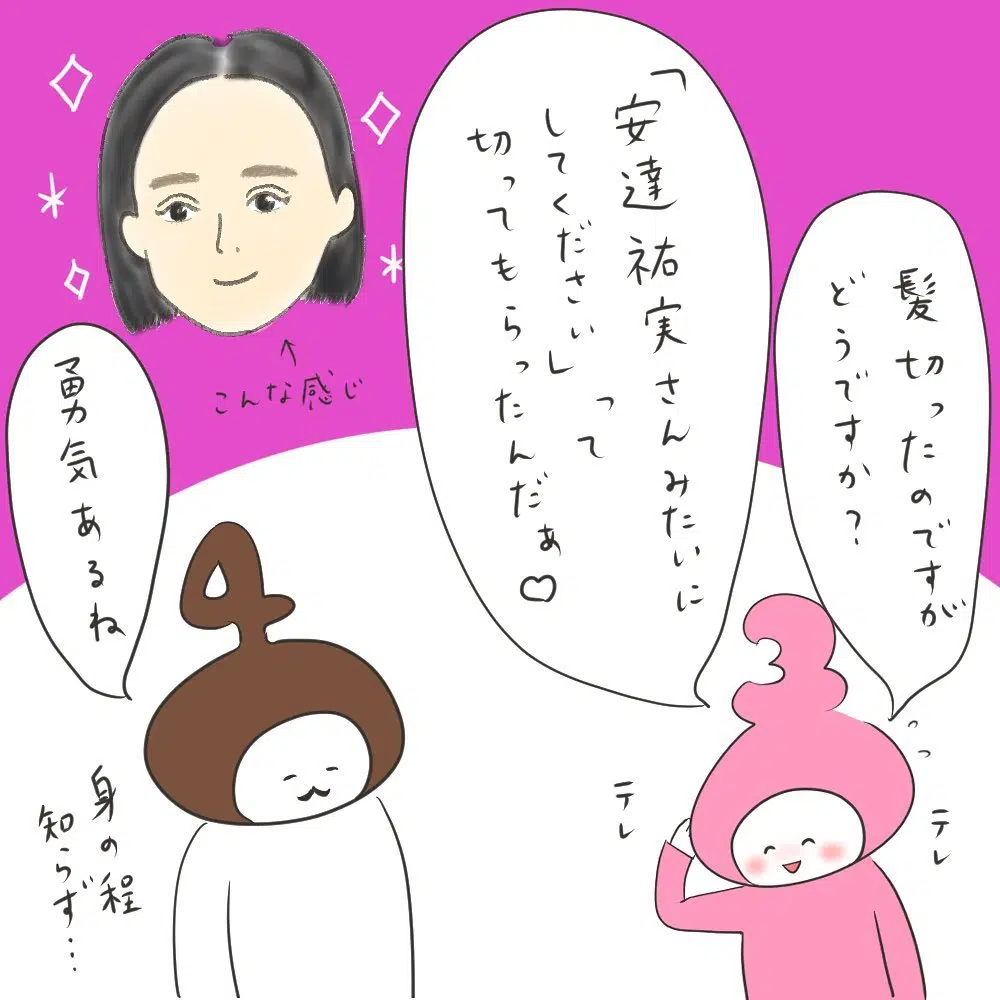 髪切ったのですが
どうですか?
「安達祐実さんみたいに
してください」って
切ってもらったんだぁ♡
こんな感じ
勇気あるね
テレ
テレ
身の程
知らず…